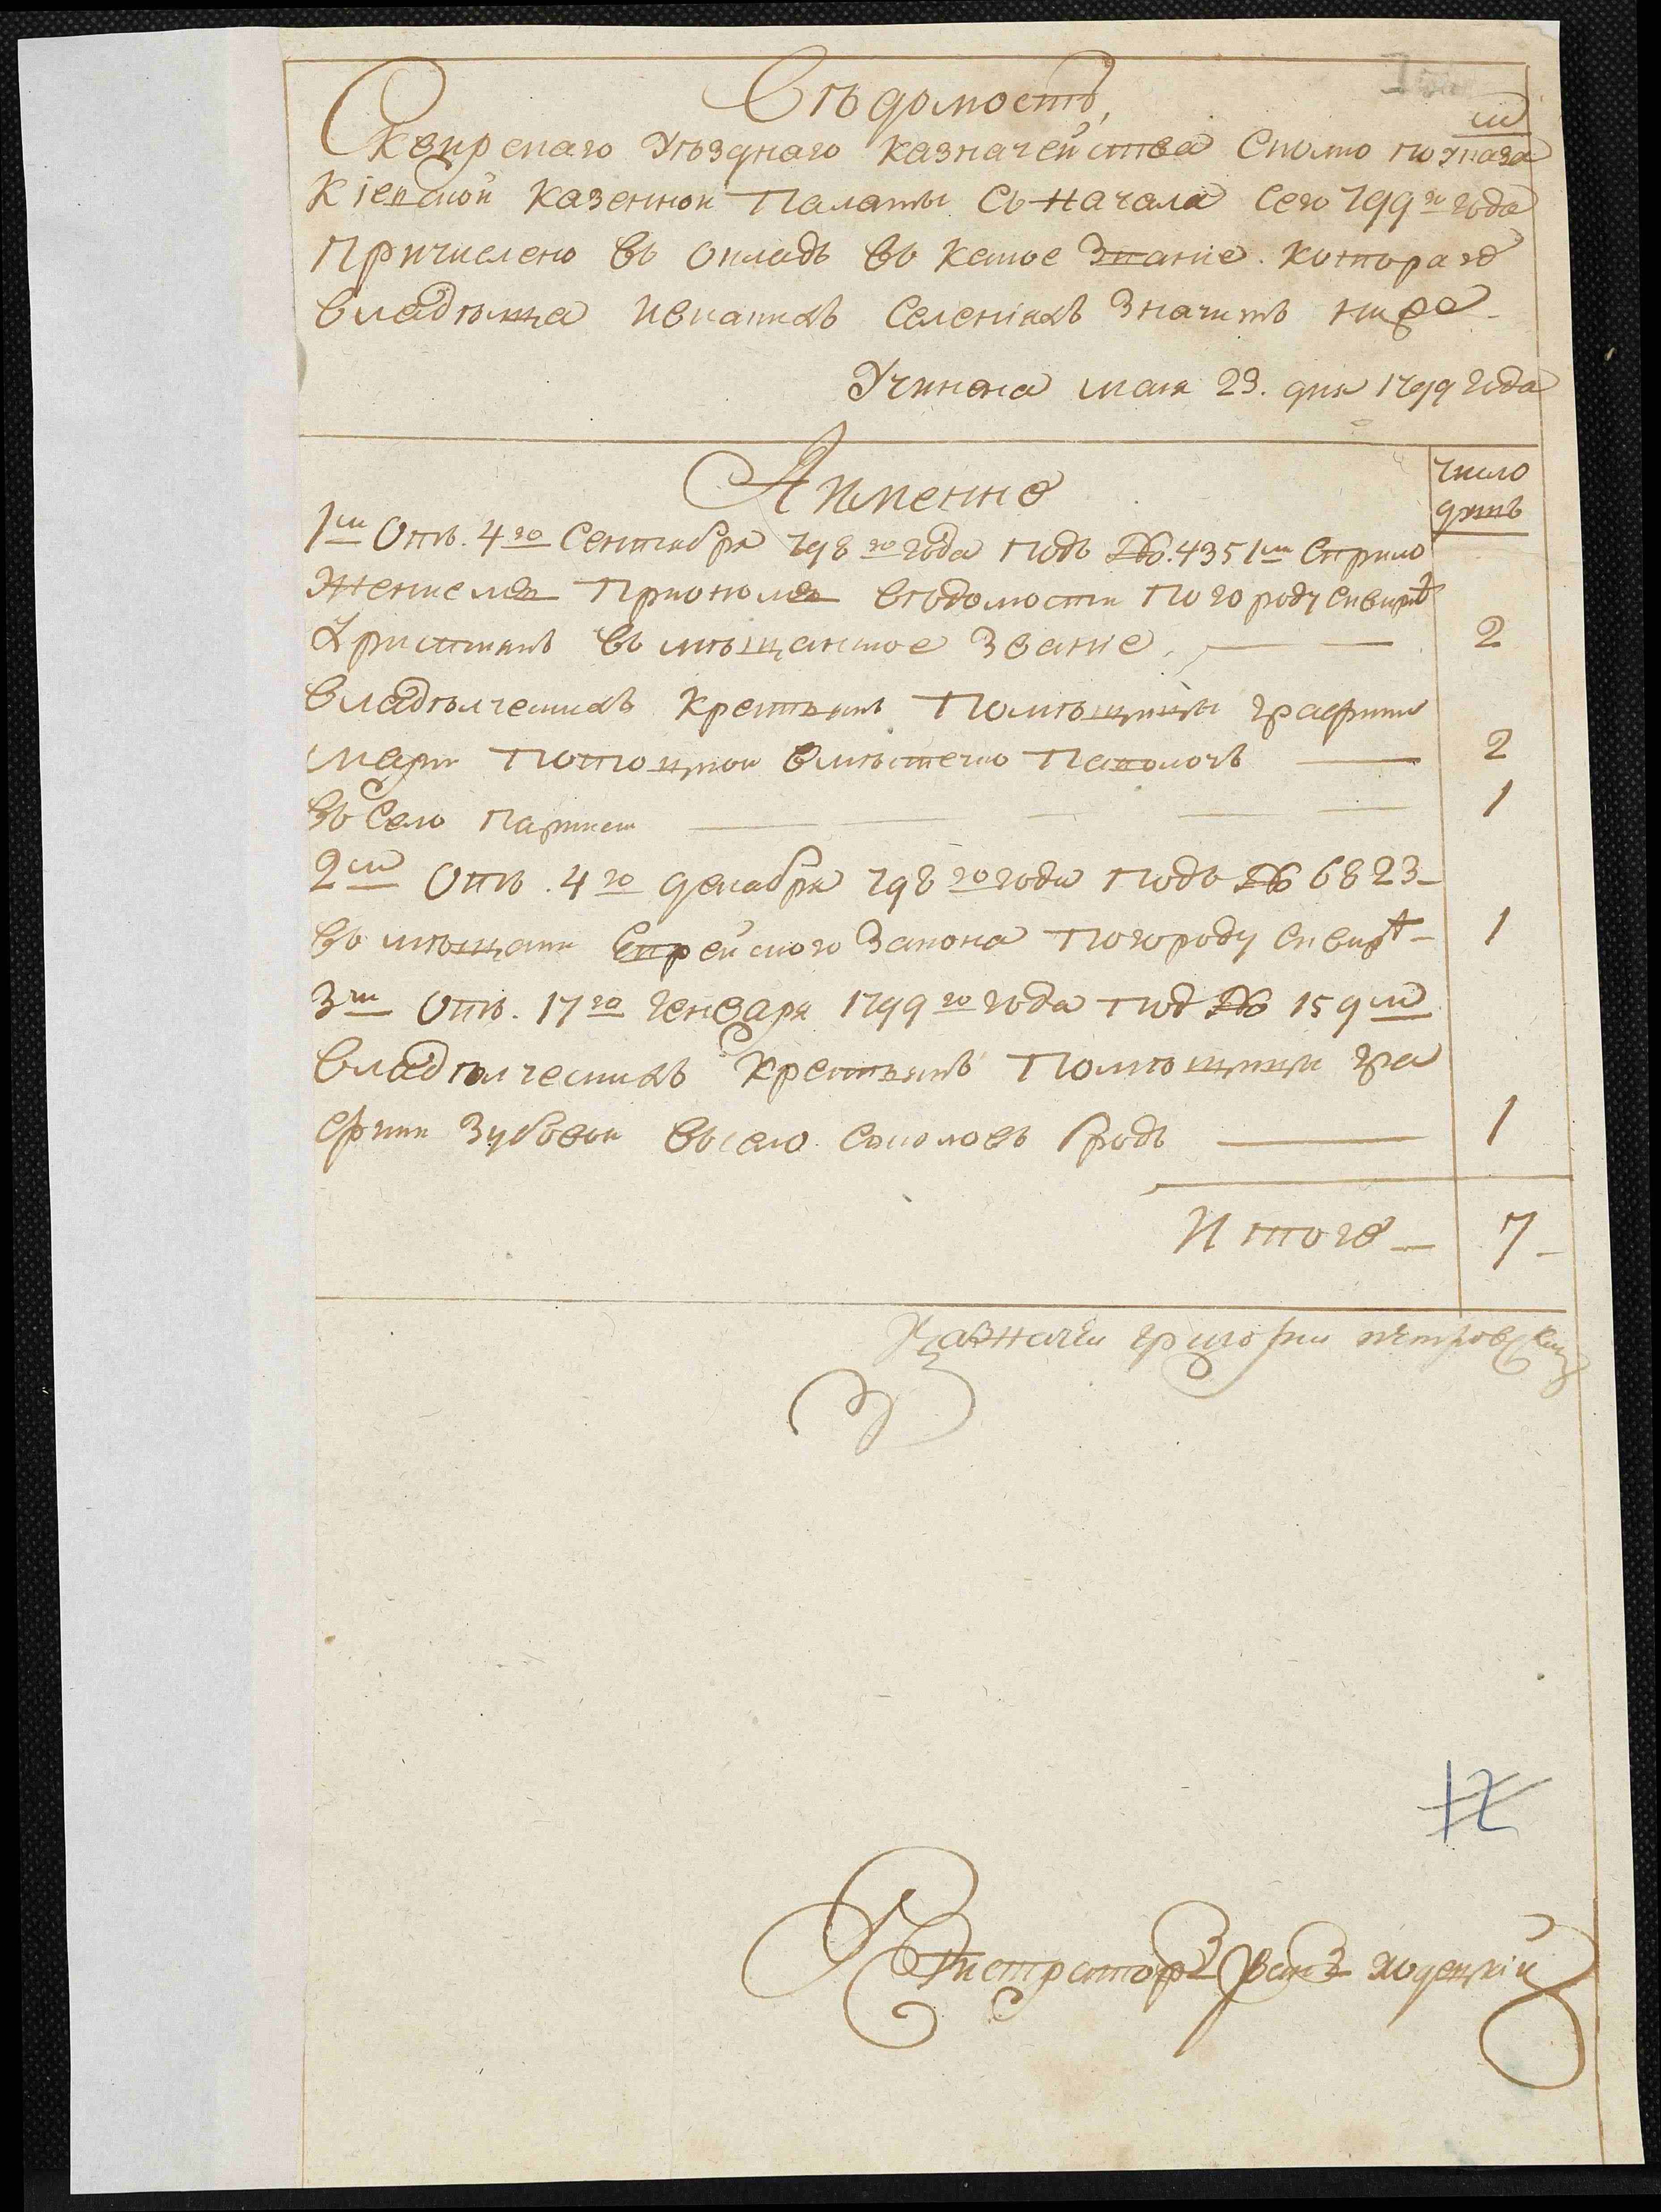 Вѣдомость,
Сквирскаго Уѣзднаго казначейства Сколко по указа
ми
Кіевской Казенной Палаты Съ начала сего 799го года
Причислено въ окладъ въ какое Знание. котораго
владѣлца и въ какихъ селеніяхъ Значитъ ниже
Учинена маия 23. дня 1799 года
А имянно
число
душъ
1м Отъ. 4го Сентября 798го года подъ №. 4351м Съ прило
жениемъ При ономъ вѣдомости По городу Сквирѣ
Христианъ въ мѣщанское Звание. 2
владѣлческихъ крестьянъ Помѣщицы графини
Мари Потоцкой в мѣстечко Паволочь 2
Въ Село 1
2м Отъ. 4го декабря 798го года Подъ № 6823
въ мѣщане Еврейского Закона По городу Сквирѣ 1
3м Отъ. 17го Генваря 1799го года под № 159м
владѣлческихъ крестьянъ Помѣщицы гра
фини Зубовой въ село Соколовъ Бродъ 1
Итого 7
Казначей григорий петровский
12
Регистраторъ Иванъ